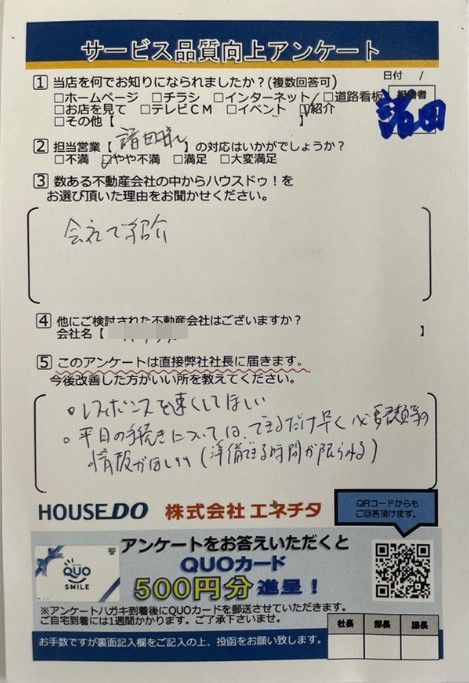 サービス品質向上アンケート
日付 /
1 当店を何でお知りになられましたか?(複数回答可)
□ホームページ □チラシ □インターネット □道路看板
□お店を見て □テレビCM □イベント ☑紹介
□その他【 】
諸田
2 担当営業【 諸田さん 】の対応はいかがでしょうか?
□不満 ☑やや不満 □満足 □大変満足
3 数ある不動産会社の中からハウスドゥ!を
お選び頂いた理由をお聞かせください。
会社で紹介
4 他にご検討された不動産会社はございますか?
会社名【 】
5 このアンケートは直接弊社社長に届きます。
今後改善した方がいい所を教えてください。
。レスポンスを速くしてほしい
。平日の手続きについては、できるだけ早く必要書類等の
情報がほしい(準備できる時間が限られる)
HOUSE DO 株式会社 エネチタ
QRコードからも
ご回答頂けます。
QUO
SMILE
アンケートをお答えいただくと
QUOカード
500円分 進呈!
※アンケートハガキ到着後にQUOカードを郵送させていただきます。
ご自宅到着には1週間かかります。ご了承下さいませ。
社長 部長 課長
お手数ですが裏面記入欄をご記入の上、投函をお願い致します。